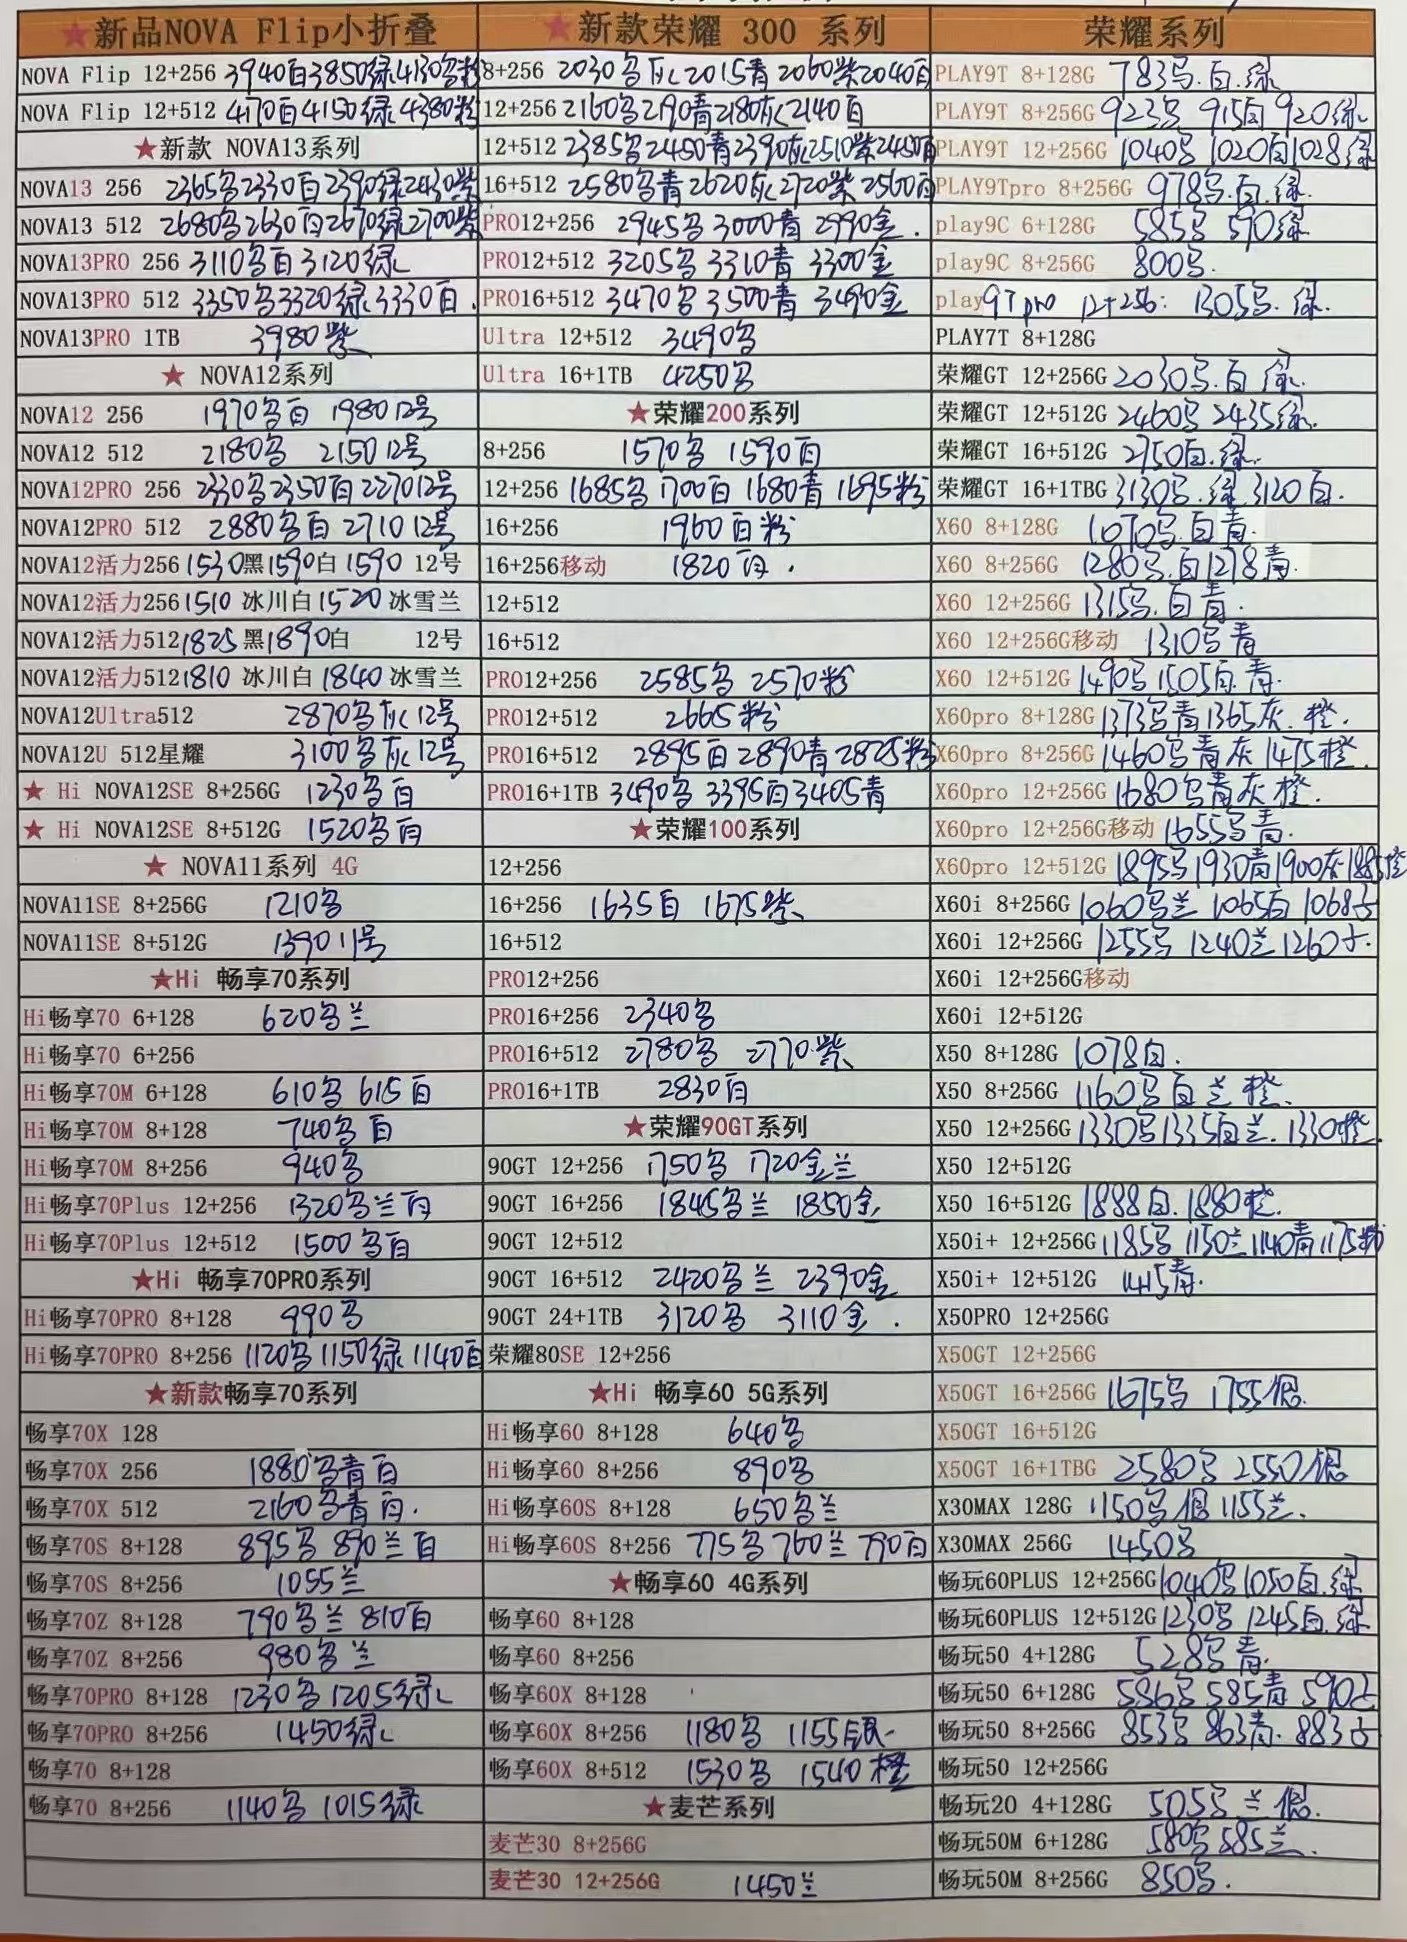 ★新品NOVA Flip小折叠
NOVA Flip 12+256 3940白3850绿4130黑粉
NOVA Flip 12+512 4170白4150绿4380粉
★新款 NOVA13系列
NOVA13 256 2365黑2330白2390绿2430紫
NOVA13 512 2680黑2630白2670绿2700紫
NOVA13PRO 256 3110黑白3120绿
NOVA13PRO 512 3350黑3320绿3330白.
NOVA13PRO 1TB 3980紫
★ NOVA12系列
NOVA12 256 1970黑白 1980 12号
NOVA12 512 2180黑 2150 12号
NOVA12PRO 256 2330黑2350白2270 12号
NOVA12PRO 512 2880黑白2710 12号
NOVA12活力256 1530黑1590白1590 12号
NOVA12活力256 1510 冰川白1520 冰雪兰
NOVA12活力512 1825 黑1890白 12号
NOVA12活力512 1810 冰川白1840 冰雪兰
NOVA12Ultra512 2870黑灰12号
NOVA12U 512星耀 3100黑灰12号
★ Hi NOVA12SE 8+256G 1230黑白
★ Hi NOVA12SE 8+512G 1520黑白
★ NOVA11系列 4G
NOVA11SE 8+256G 1210黑
NOVA11SE 8+512G 1390 11号
★Hi 畅享70系列
Hi畅享70 6+128 620黑兰
Hi畅享70 6+256
Hi畅享70M 6+128 610黑 615白
Hi畅享70M 8+128 740黑白
Hi畅享70M 8+256 940黑
Hi畅享70Plus 12+256 1320黑兰白
Hi畅享70Plus 12+512 1500黑白
★Hi 畅享70PRO系列
Hi畅享70PRO 8+128 990黑
Hi畅享70PRO 8+256 1120黑1150绿1140白
★新款畅享70系列
畅享70X 128
畅享70X 256 1880黑青白
畅享70X 512 2160黑青白.
畅享70S 8+128 895黑 890兰白
畅享70S 8+256 1055兰
畅享70Z 8+128 790黑兰 810白
畅享70Z 8+256 980黑兰
畅享70PRO 8+128 1230黑1205绿
畅享70PRO 8+256 1450绿
畅享70 8+128
畅享70 8+256 1140黑 1015绿
★新款荣耀 300 系列
8+256 2030黑灰2015青2060紫2040白
12+256 2160黑2190青2180灰2140白
12+512 2385黑2450青2390灰2510紫2450白
16+512 2580黑青2620灰2720紫2560白
PRO12+256 2945黑3000青2990金.
PRO12+512 3205黑 3310青 3300金
PRO16+512 3470黑3500青 3490金
Ultra 12+512 3490黑
Ultra 16+1TB 4250黑
★荣耀200系列
8+256 1570黑 1590白
12+256 1685黑1700白1680青1695粉
16+256 1960白粉
16+256移动 1820白.
12+512
16+512
PRO12+256 2585黑 2570粉
PRO12+512 2665粉
PRO16+512 2895白2890青2825粉
PRO16+1TB 3490黑3395白3405青
★荣耀100系列
12+256
16+256 1635白 1675紫
16+512
PRO12+256
PRO16+256 2340黑
PRO16+512 2780黑 2770紫
PRO16+1TB 2830白
★荣耀90GT系列
90GT 12+256 1750黑 1720金兰
90GT 16+256 1845黑兰 1850金
90GT 12+512
90GT 16+512 2420黑兰 2390金
90GT 24+1TB 3120黑 3110金.
荣耀80SE 12+256
★Hi 畅享60 5G系列
Hi畅享60 8+128 640黑
Hi畅享60 8+256 890黑
Hi畅享60S 8+128 650黑兰
Hi畅享60S 8+256 775黑760兰790白
★畅享60 4G系列
畅享60 8+128
畅享60 8+256
畅享60X 8+128
畅享60X 8+256 1180黑 1155银
畅享60X 8+512 1530黑 1540橙
★麦芒系列
麦芒30 8+256G
麦芒30 12+256G 1450兰
荣耀系列
PLAY9T 8+128G 783黑.白.绿
PLAY9T 8+256G 923黑 915白920绿
PLAY9T 12+256G 1040黑 1020白1028绿
PLAY9Tpro 8+256G 978黑.白.绿
play9C 6+128G 585黑 590绿
play9C 8+256G 800黑.
play9Tpro 12+256: 1305黑.绿.
PLAY7T 8+128G
荣耀GT 12+256G 2030黑.白 绿
荣耀GT 12+512G 2460黑 2435绿
荣耀GT 16+512G 2750白.绿
荣耀GT 16+1TBG 3130黑.绿3120白.
X60 8+128G 1070黑.白青.
X60 8+256G 1280黑.白1278青.
X60 12+256G 1315黑.白青.
X60 12+256G移动 1310黑青
X60 12+512G 1490黑1505白.青.
X60pro 8+128G 1373黑青1365灰.橙.
X60pro 8+256G 1460黑青灰1475橙.
X60pro 12+256G 1680黑青灰橙.
X60pro 12+256G移动 1655黑青.
X60pro 12+512G 1895黑1930青1900灰1885橙
X60i 8+256G 1060黑兰 1065白 1068
X60i 12+256G 1255黑 1240兰1260
X60i 12+256G移动
X60i 12+512G
X50 8+128G 1078白.
X50 8+256G 1160黑白兰橙.
X50 12+256G 1330黑1335白兰.1330橙.
X50 12+512G
X50 16+512G 1888白.1880橙.
X50i+ 12+256G 1185黑1150兰1140青1175粉
X50i+ 12+512G 1415青.
X50PRO 12+256G
X50GT 12+256G
X50GT 16+256G 1675黑 1755银
X50GT 16+512G
X50GT 16+1TBG 2580黑 2550银
X30MAX 128G 1150黑银1155兰.
X30MAX 256G 1450黑
畅玩60PLUS 12+256G 1040黑1050白.绿
畅玩60PLUS 12+512G 1230黑 1245白.绿
畅玩50 4+128G 528黑青.
畅玩50 6+128G 586黑585青 590
畅玩50 8+256G 853黑 863青.883
畅玩50 12+256G
畅玩20 4+128G 505黑兰银.
畅玩50M 6+128G 580黑585兰.
畅玩50M 8+256G 850黑.